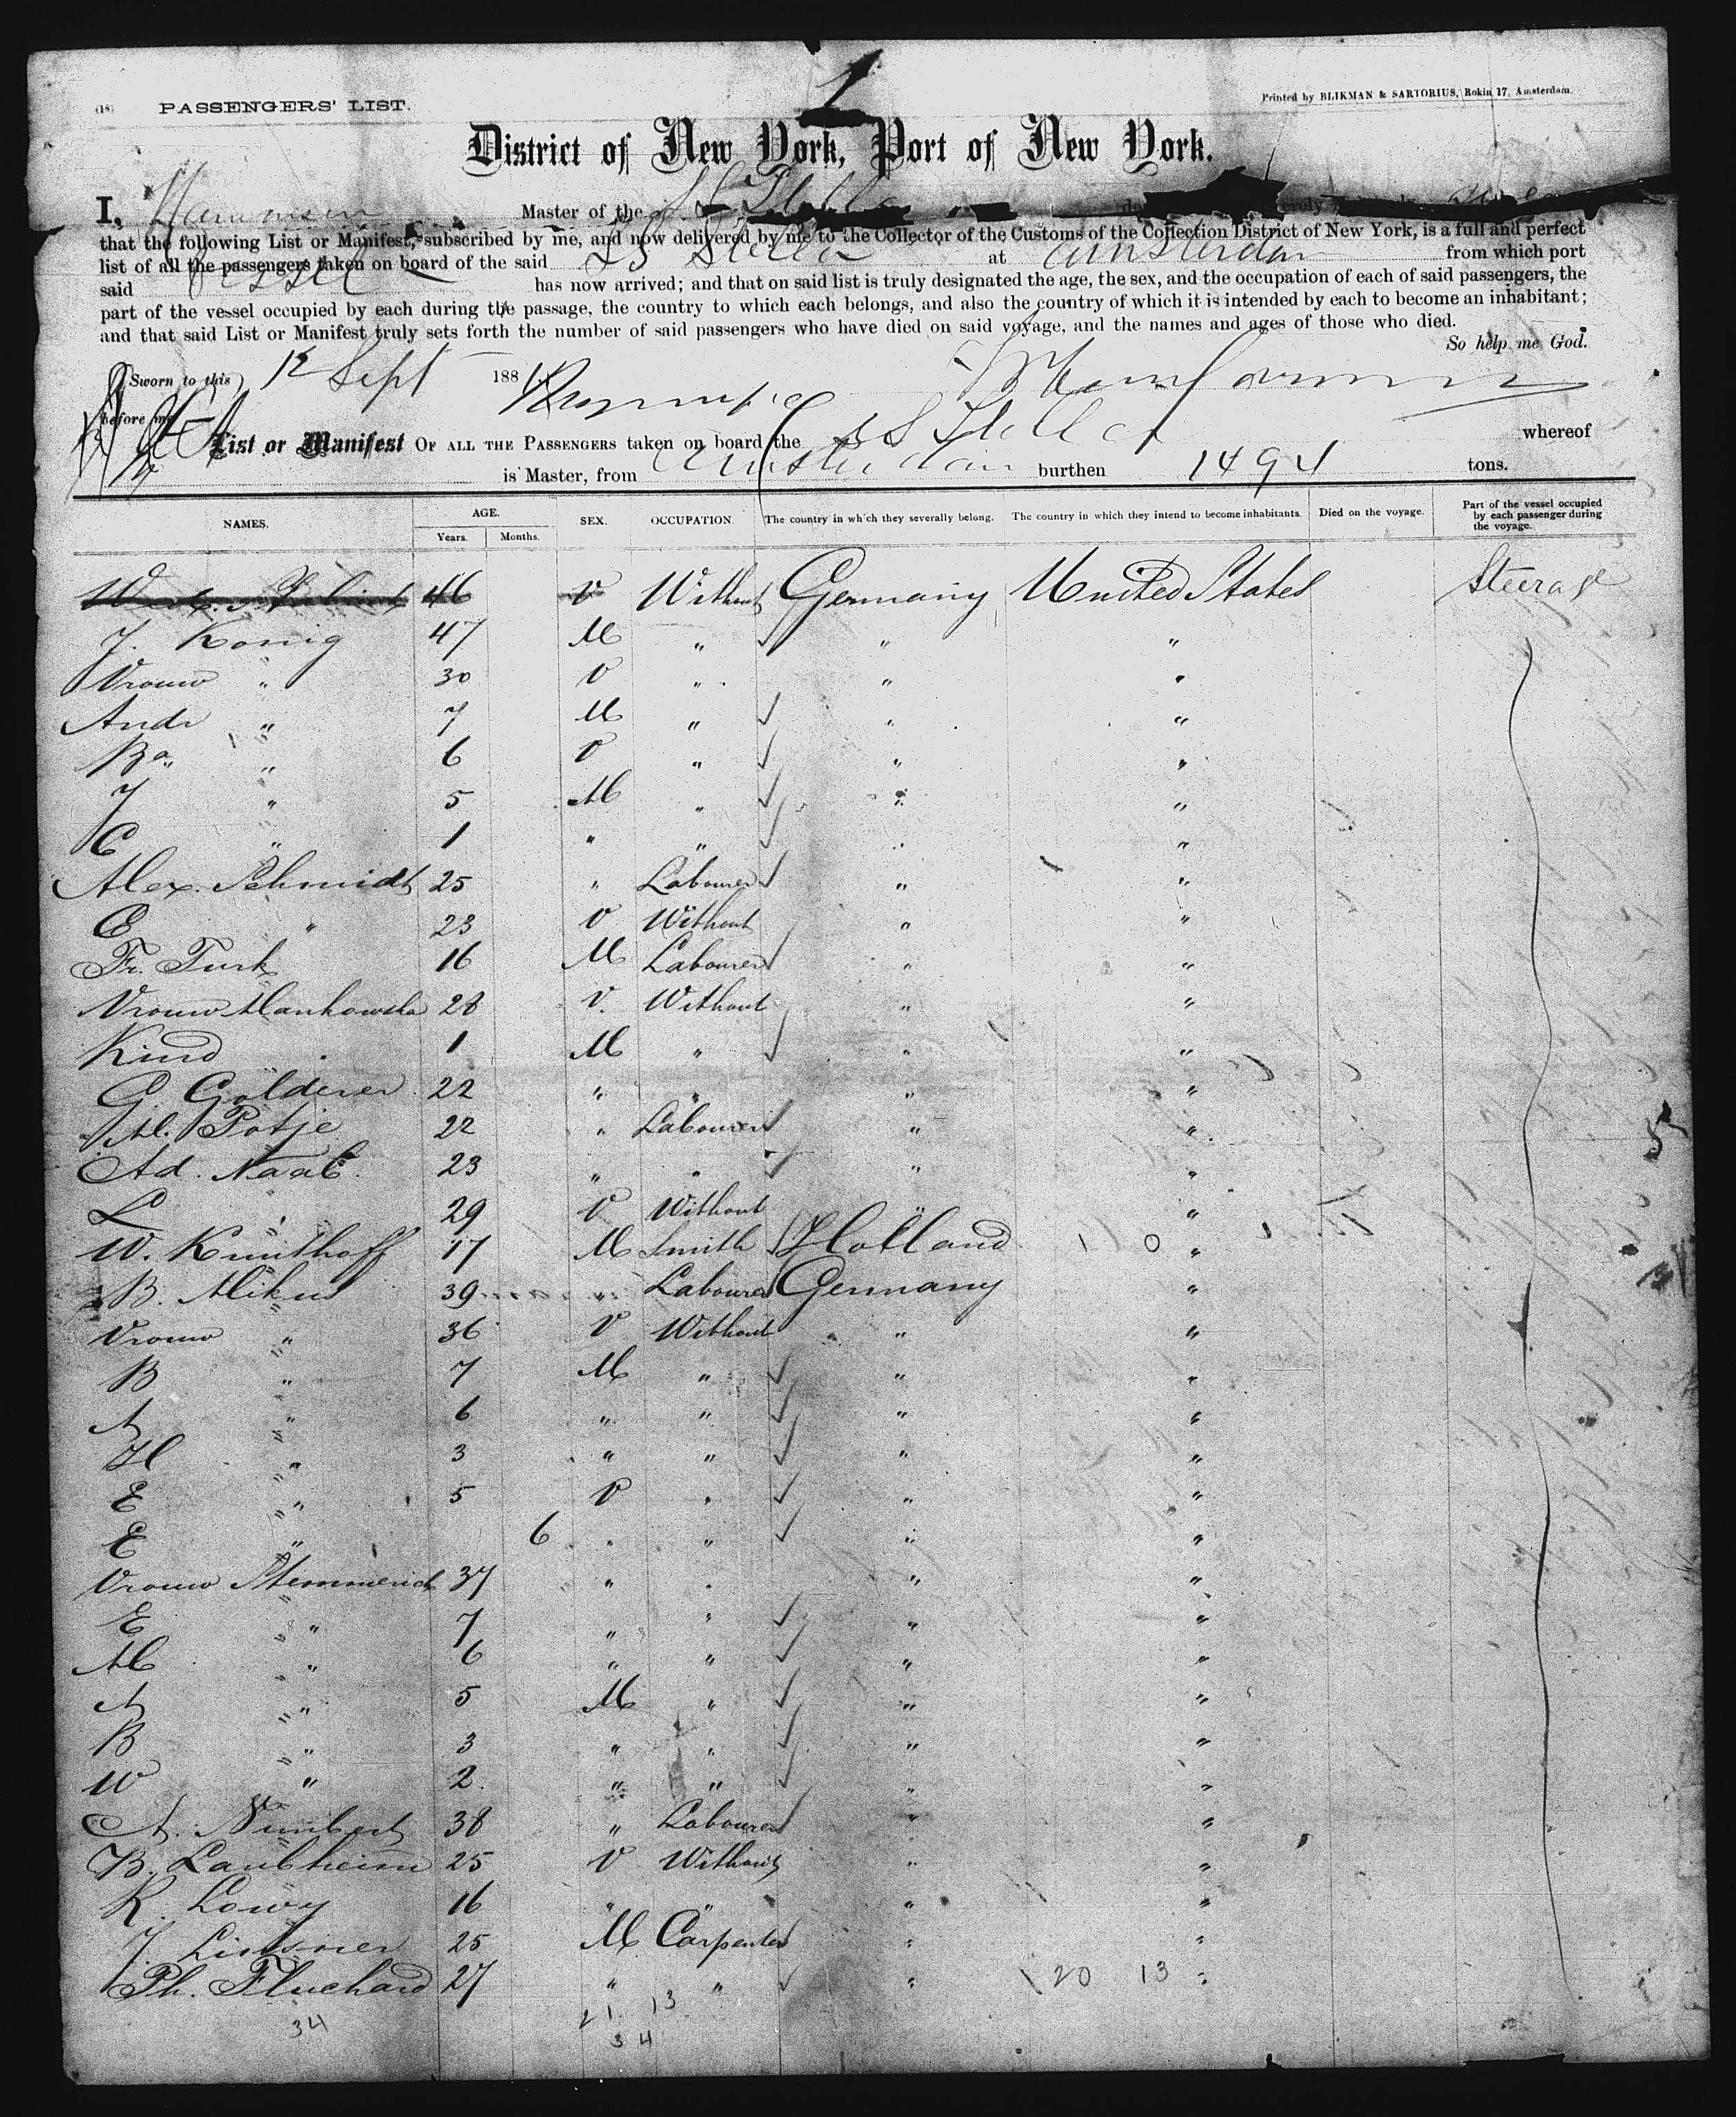 PASSENGERS' LIST.
Printed by BLIKMAN & SARTORIUS, Rokin 17, Amsterdam.
District of New York, Port of New York.
I, Master of the
that the following List or Manifest, subscribed by me, and now delivered by me to the Collector of the Customs of the Collection District of New York, is a full and perfect
list of all the passengers taken on board of the said SS Stella at Amsterdam from which port
said Vessel has now arrived; and that on said list is truly designated the age, the sex, and the occupation of each of said passengers, the
part of the vessel occupied by each during the passage, the country to which each belongs, and also the country of which it is intended by each to become an inhabitant;
and that said List or Manifest truly sets forth the number of said passengers who have died on said voyage, and the names and ages of those who died.
So help me God.
Sworn to this 12 Sept 188
before me
List or Manifest OF ALL THE PASSENGERS taken on board the SS Stella whereof
is Master, from Amsterdam burthen 1494 tons.
NAMES. AGE. Years. Months. SEX. OCCUPATION. The country in which they severally belong. The country in which they intend to become inhabitants. Died on the voyage. Part of the vessel occupied by each passenger during the voyage.
46 V Without Germany United States Steerage
J. Konig 47 M " " "
Vrouw " 30 V " " "
Andr " 7 M " " "
Ba " 6 V " " "
J " 5 M " " "
C " 1 " " " "
Alex. Schmidt 25 " Labourer " "
E " 23 V Without " "
Fr. Turk 16 M Labourer " "
Vrouw Mankowska 28 V. Without " "
Kind 1 M " " "
G. Golderer 22 " " " "
M. Potje 22 " Labourer " "
Ad. Naab 23 " " " "
L " 29 V Without "
W. Knuthoff 17 M Smith Holland 1 0 "
B. Mikus 39 " Labourer Germany "
Vrouw " 36 V Without " "
B " 7 M " " "
A " 6 " " " "
H " 3 " " " "
E " 5 V " " "
E " 6 " " " "
Vrouw Stemmerich 37 " " " "
E " 7 " " " "
M " 6 " " " "
A " 5 M " " "
B " 3 " " " "
W " 2 " " " "
A. 38 " Labourer " "
B. Laubheim 25 V Without " "
R. Lowy 16 " " " "
J. Linsner 25 M Carpenter " "
Ph. Fluchard 27 " " " 20 13 "
34 21 13
34